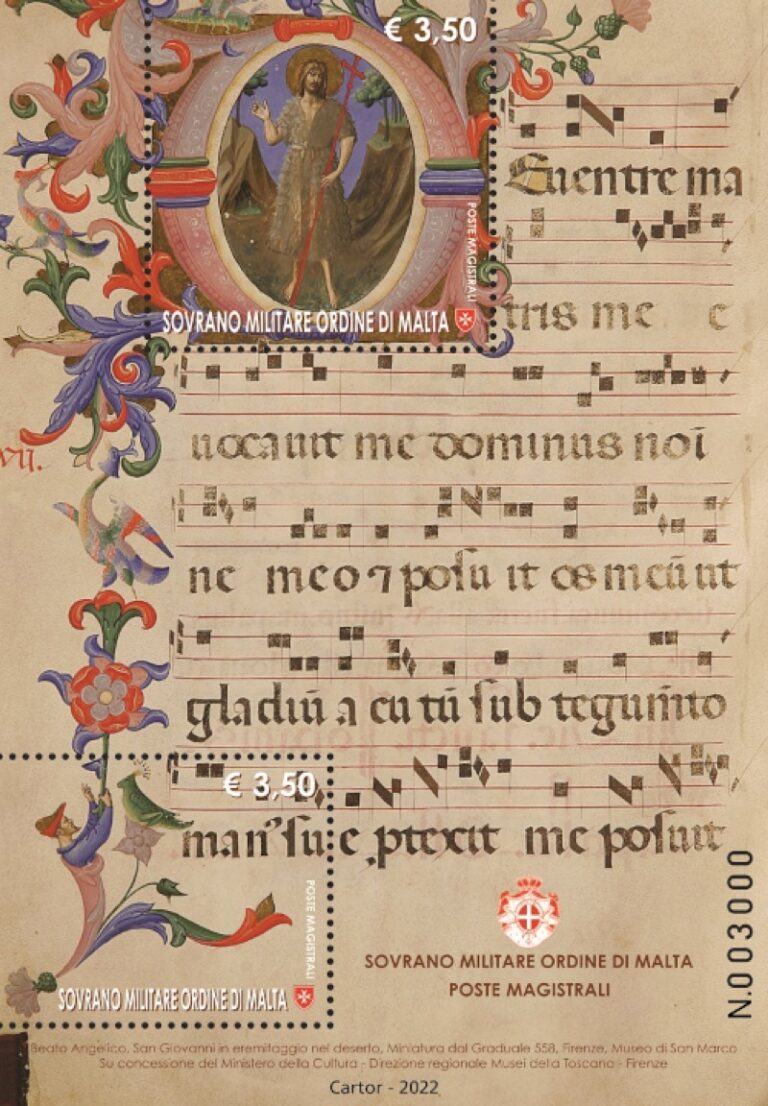 € 3,50
Euentre ma
POSTE MAGISTRALI
tris me e
SOVRANO MILITARE ORDINE DI MALTA
uocauit me dominus noi
VII.
ne meo ⁊ posu it os meū ut
gladiū a cu tū sub tegum̄to
€ 3,50
man' su e ptexit me posuit
POSTE MAGISTRALI
SOVRANO MILITARE ORDINE DI MALTA
SOVRANO MILITARE ORDINE DI MALTA
POSTE MAGISTRALI
N.003000
Beato Angelico, San Giovanni in eremitaggio nel deserto, Miniatura dal Graduale 558, Firenze, Museo di San Marco
Su concessione del Ministero della Cultura - Direzione regionale Musei della Toscana - Firenze
Cartor - 2022